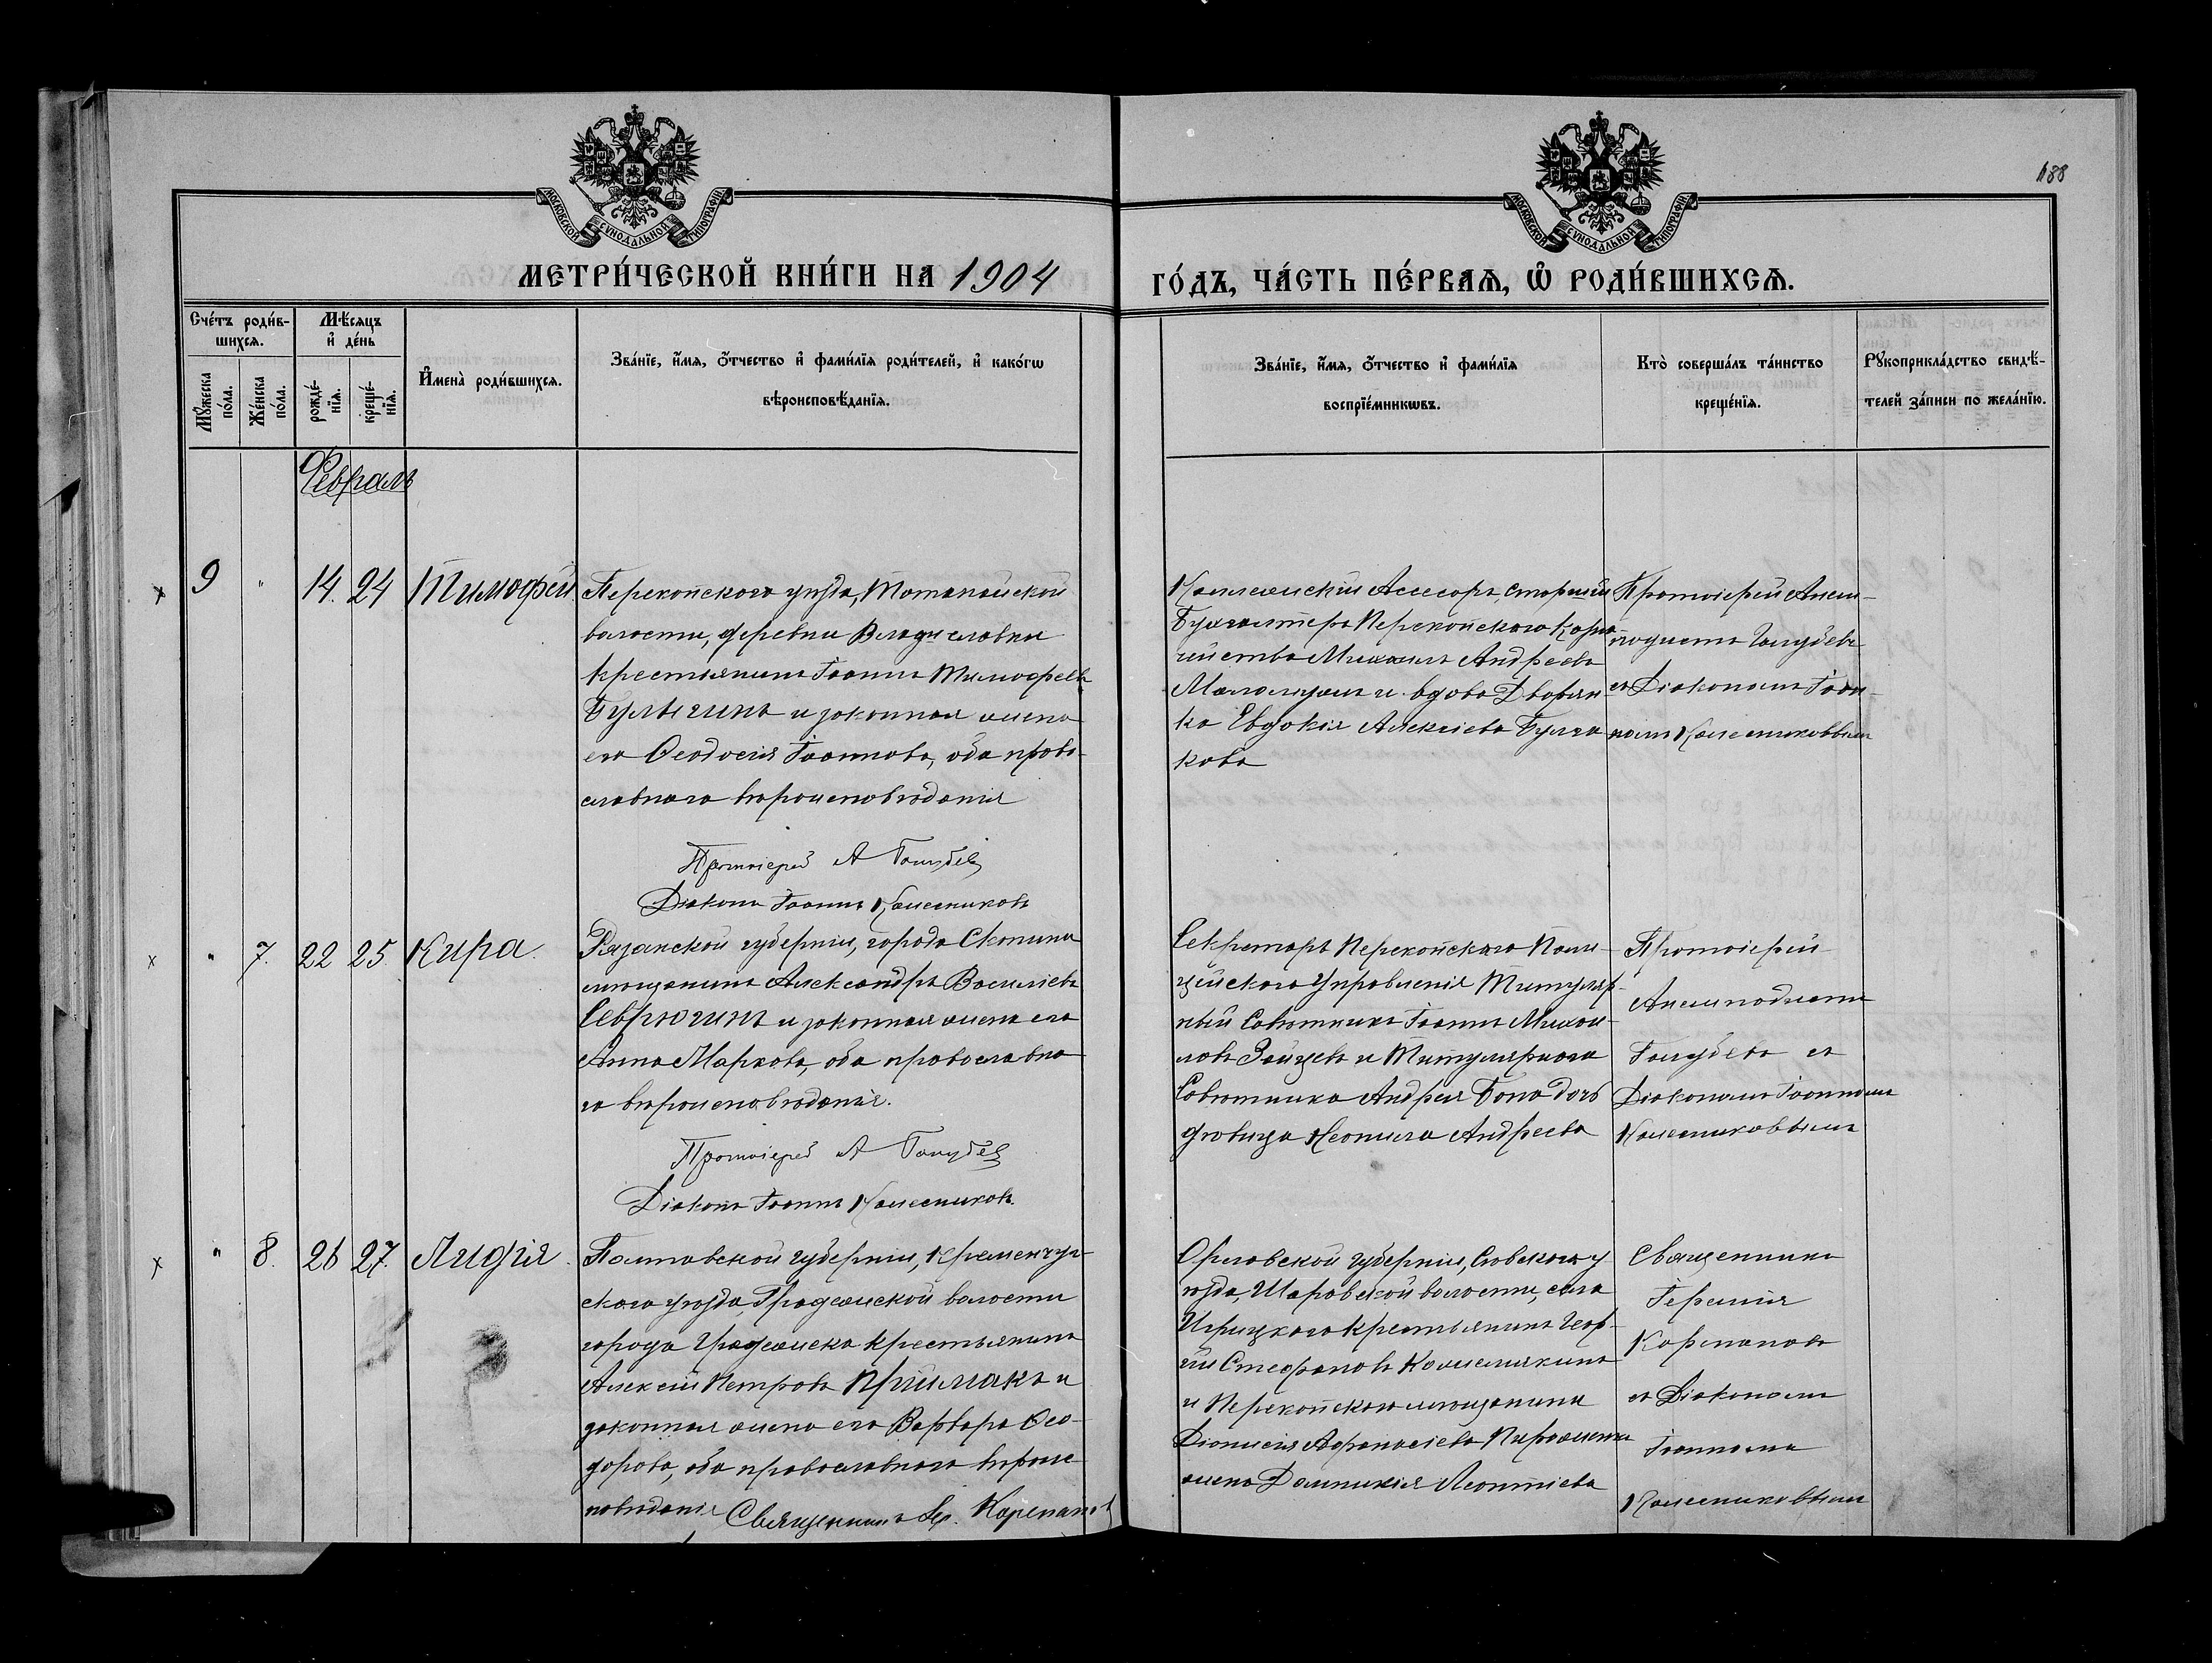 188
МОСКОВСКОЙ СѴНОДАЛЬНОЙ ТИПОГРАФІИ
МОСКОВСКОЙ СѴНОДАЛЬНОЙ ТИПОГРАФІИ
МЕТРИ́ЧЕСКОЙ КНИ́ГИ НА 1904 ГО́ДЪ, ЧА́СТЬ ПЕ́РВАѦ, Ѽ РОДИ́ВШИХСѦ.
Сче́тъ роди́в-
шихсѧ.
Мꙋ́жеска
по́ла.
Же́нска
по́ла.
Мѣ́сяцъ
и҆ де́нь
рожде́-
нїѧ.
креще́-
нїѧ.
И҆мена̀ роди́вшихсѧ.
Зва́нїе, и҆́мѧ, ѻ҆́тчество и҆ фами́лїѧ роди́телей, и҆ како́гѡ
вѣроисповѣ́данїѧ.
Зва́нїе, и҆́мѧ, ѻ҆́тчество и҆ фами́лїѧ
воспрїе́мникѡвъ.
Кто̀ соверша́лъ та́инство
креще́нїѧ.
Рꙋкоприкла́дство свидѣ́-
телей за́писи по жела́нїю.
Февраль
9 " 14. 24 Тимофей
Перекопского уѣзда, Тотанайской
волости, деревни Владиславки
крестьянинъ Іоаннъ Тимофеевъ
Булыгинъ и законная жена
его Ѳеодосія Іоаннова, оба право-
славнаго вѣроисповѣданія
Протоіерей А Голубев
Діаконъ Іоаннъ Колесниковъ
Коллежскій Ассесоръ, старшій
Бухгалтеръ Перекопского Казна
чейства Михаилъ Андреевъ
и вдова Дворян
ка Евдокія Алексіева Булга
кова
Протоіерей Анем-
подистъ Голубевъ
съ Діакономъ Іоан-
номъ Колесниковымъ
" 7. 22 25. Кира.
Рязанской губерніи, города Скопина
мѣщанинъ Александръ Василіевъ
Севрюгинъ и законная жена его
Анна Маркова, оба православна
го вѣроисповѣданія.
Протоіерей А Голубев
Діаконъ Іоаннъ Колесниковъ.
Секретарь Перекопского Поли-
цейского Управленія Титуляр-
ный Совѣтникъ Іоаннъ Михаи-
ловъ Зайцевъ и Титулярнаго
Совѣтника Андрея Бона дочь
дѣвица Леонила Андреева
Протоіерей
Анемподистъ
Голубевъ съ
Діакономъ Іоанномъ
Колесниковымъ
" 8. 26 27. Лидія.
Полтавской губерніи, Кременчуг-
скаго уѣзда Градижской волости
города Градижска крестьянинъ
Алексій Петровъ Приймакъ и
законная жена его Варвара Ѳео-
дорова, оба православнаго вѣроис-
повѣданія Священникъ Іер. Карпановъ
Орловской губерніи, Сѣвскаго у-
ѣзда, Шаровской волости, села
Игрицкаго крестьянинъ Геор-
гій Стефановъ
и Перекопскаго мѣщанина
Діонисія Афанасіева
жена Домникія Леонтіева
Священникъ
Іеремія
Карпановъ
съ Діакономъ
Іоанномъ
Колесниковымъ